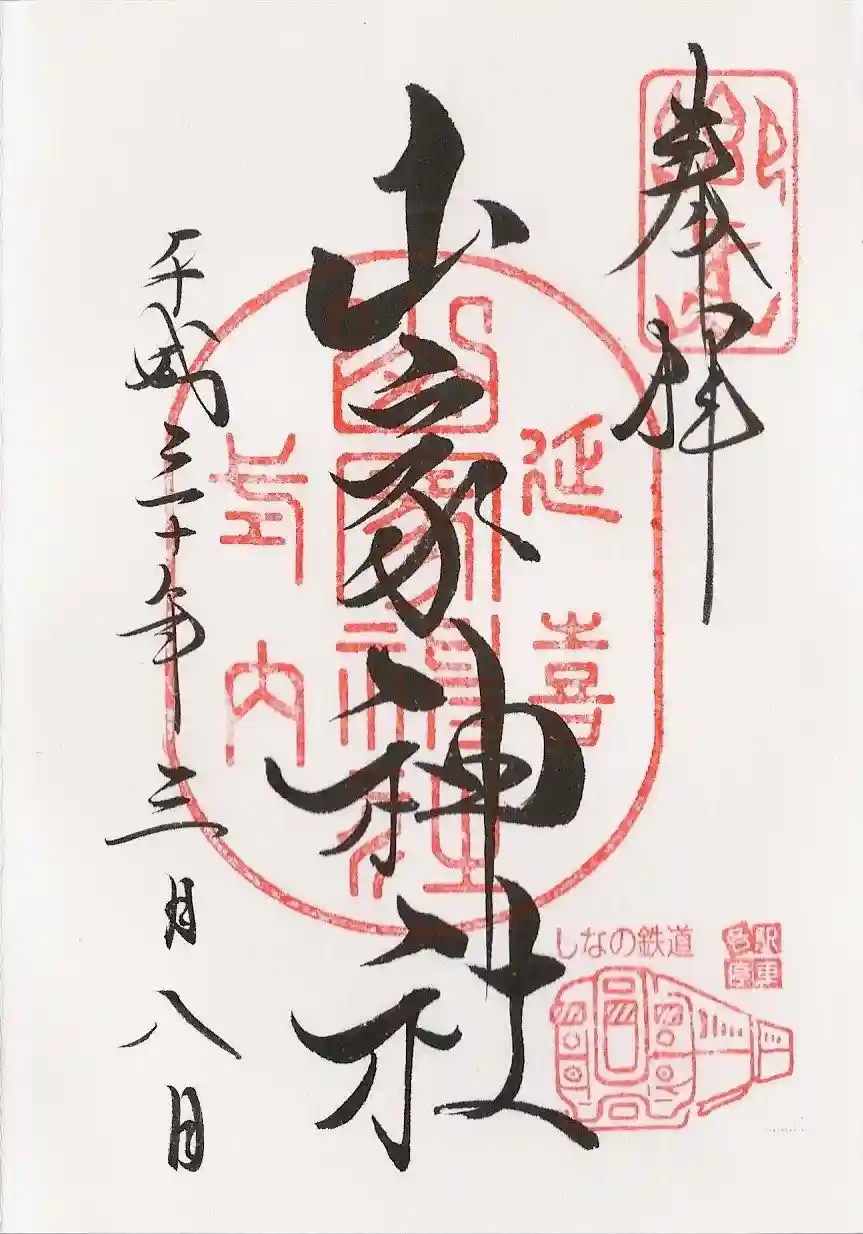 奉拝
山家神社
延喜
式内
山家神社
平成三十年三月八日
しなの鉄道
各駅
停車